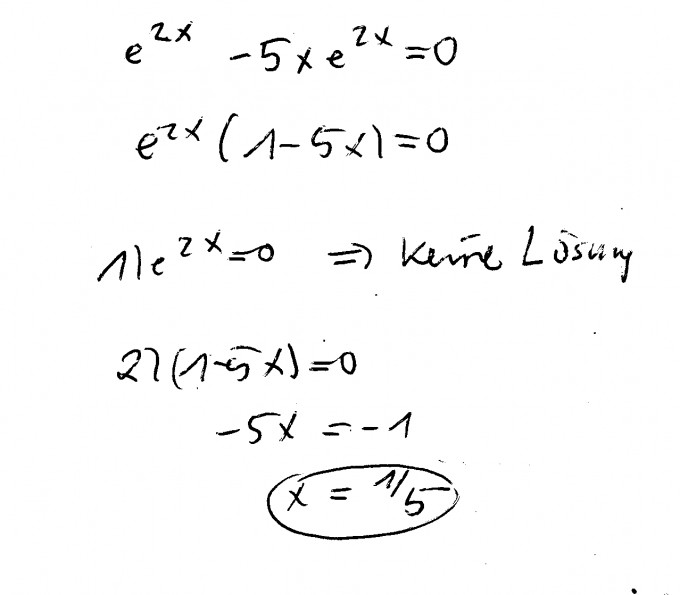 e^{2x} - 5xe^{2x} = 0
e^{2x}(1 - 5x) = 0
1) e^{2x} = 0 ⇒ keine Lösung
2) (1 - 5x) = 0
-5x = -1
x = 1/5